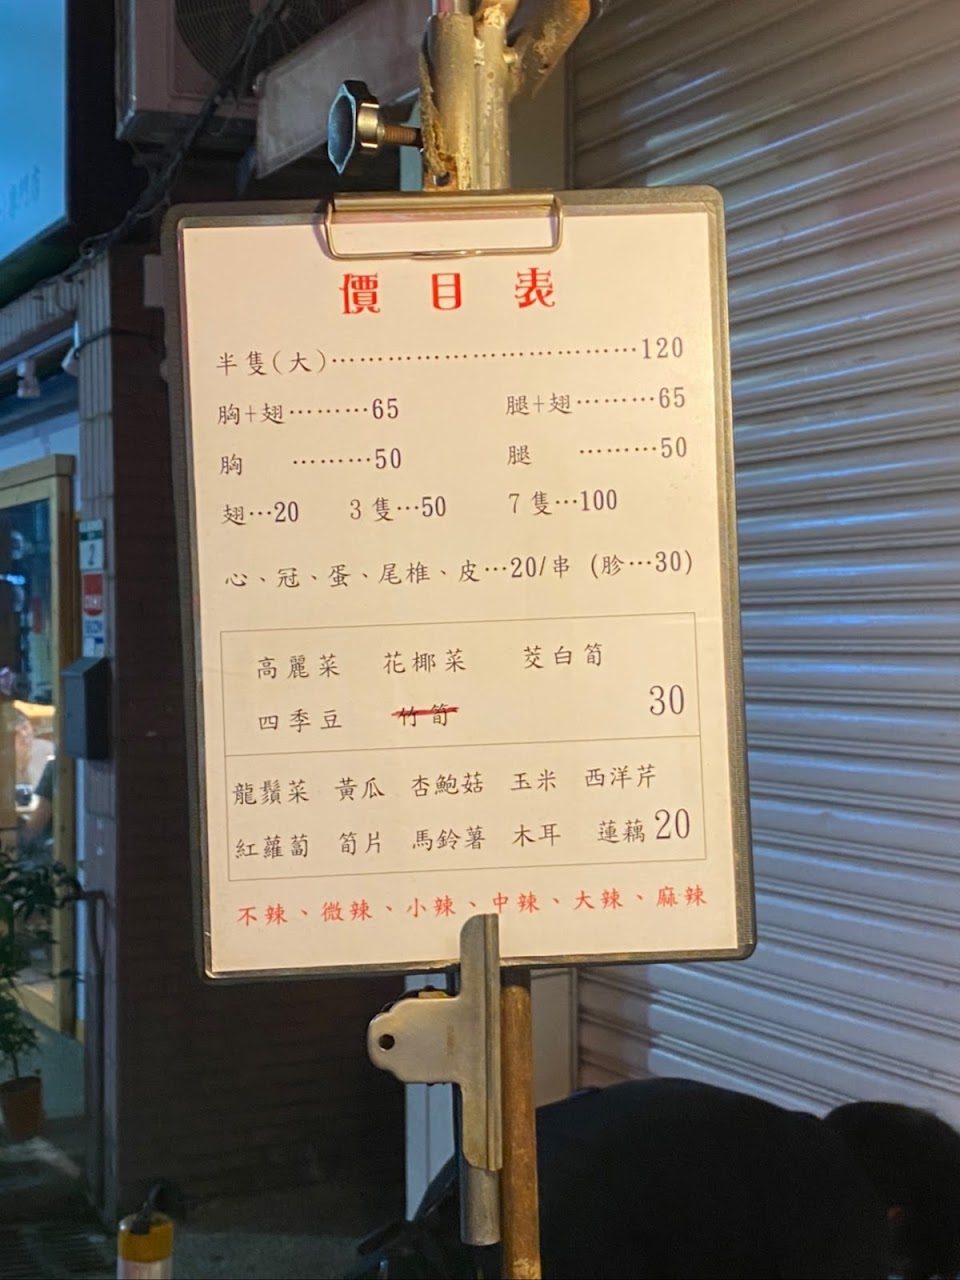 價目表
半隻(大)⋯⋯⋯⋯⋯⋯⋯⋯⋯⋯⋯120
胸+翅⋯⋯⋯65 腿+翅⋯⋯⋯65
胸 ⋯⋯⋯50 腿 ⋯⋯⋯50
翅⋯20 3隻⋯50 7隻⋯100
心、冠、蛋、尾椎、皮⋯20/串 (胗⋯30)
高麗菜 花椰菜 茭白筍
四季豆 竹筍 30
龍鬚菜 黃瓜 杏鮑菇 玉米 西洋芹
紅蘿蔔 筍片 馬鈴薯 木耳 蓮藕 20
不辣、微辣、小辣、中辣、大辣、麻辣